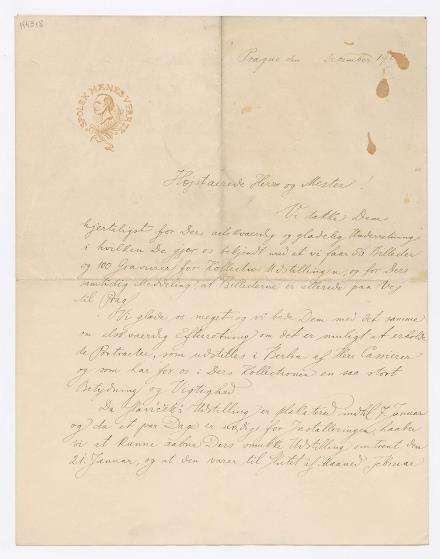 SPOLEK MANES V PRAZE
Prague den December 19
Højstærede Herre og Mester!
Vi takke Dem
hjerteligst for Deres elskværdig og glædelig Underretning,
i hvilken De gjør os bekjendt med at vi faar Billeder
og 100 Gravurer for Kollectiv Udstillingen, og for Deres
Meddeling at Billederne er allerede paa Vej
til Prag.
Vi glæde os meget og vi bede Dem med det samme
om elskværdig Efterretning om det er muligt at erholde
de Portræter, som udstilles i Berlin af Herr Cassierer
og som har for os i Deres Kollectionen en saa stort
Betydning og Vigtighed
Da Slaviček's Udstilling er indtil 7. Januar
og da et par Dage er nødige for Installeringen, haaber
vi at kunne aabne Deres Udstilling omtrent den
21. Januar, og at den varer til Slutet af Maaned Februar